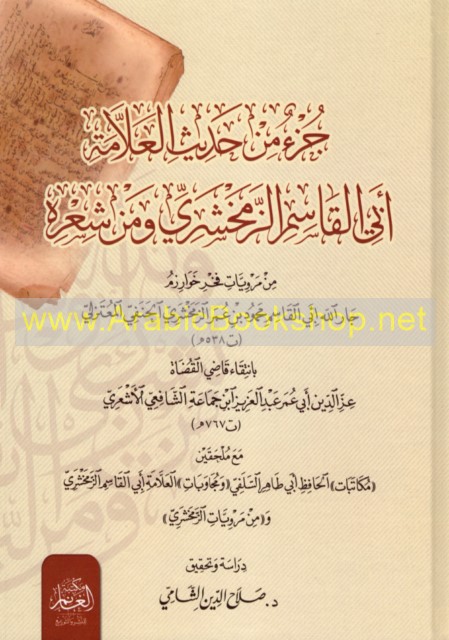 جُزْءٌ مِنْ حَدِيثِ العَلَّامَةِ
أَبِي القَاسِمِ الزَّمَخْشَرِيِّ وَمَنْ شِعْرِهِ
مِنْ مَرْوِيَّاتِ فَخْرِ خَوَارِزمُ
جار الله أبي القاسم محمود بن عمر الزمخشري الحنفي المعتزلي
www.ArabicBookshop.net
(ت ٥٣٨هـ)
بانتقاء قاضي القضاة
عز الدين أبي عمر عبد العزيز ابن جماعة الشافعي الأشعري
(ت ٧٦٧هـ)
مع ملحقين
«مكاتبات» الحافظ أبي طاهر السلفي «ومجاوبات» العلامة أبي القاسم الزمخشري
و«من مرويات الزمخشري»
دراسة وتحقيق
د. صلاح الدين الشامي
مكتبة
الغانم
للنشر والتوزيع